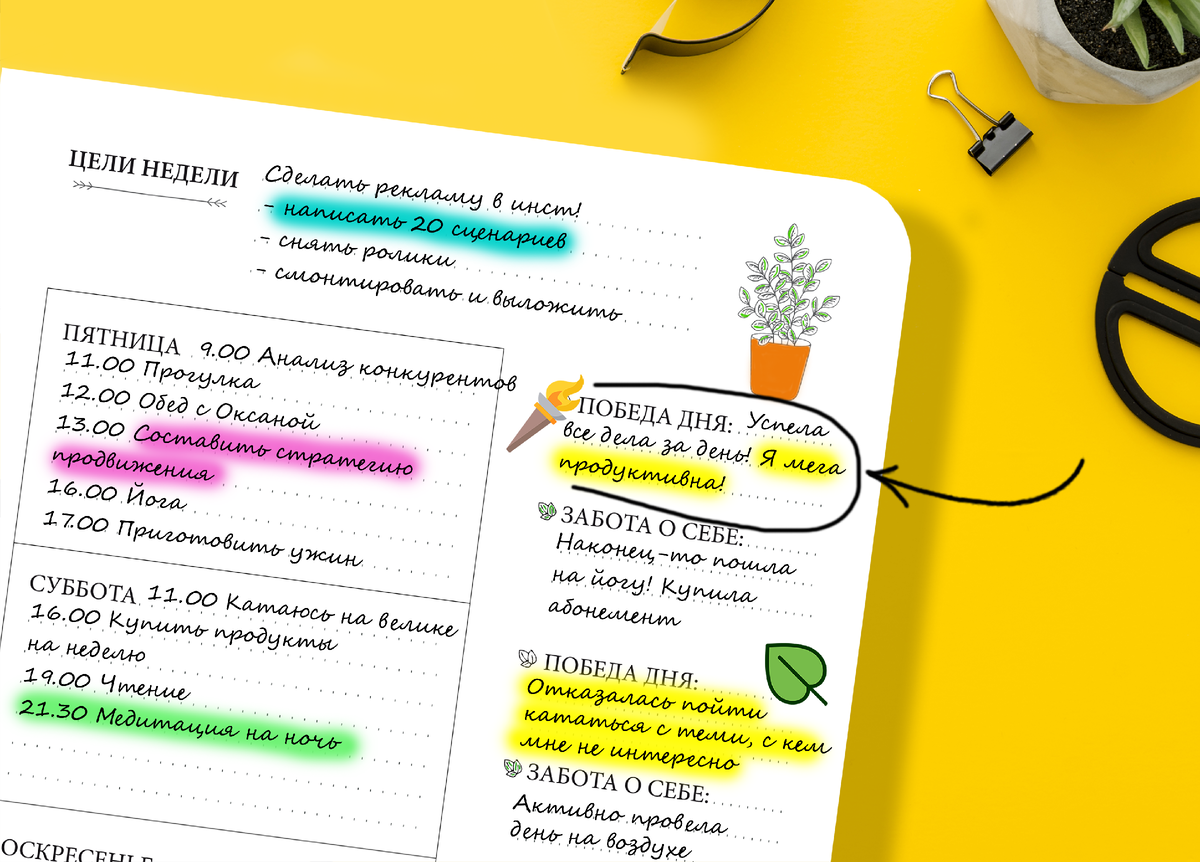 ЦЕЛИ НЕДЕЛИ
Сделать рекламу в инст!
- написать 20 сценариев
- снять ролики
- смонтировать и выложить
ПЯТНИЦА 9.00 Анализ конкурентов
11.00 Прогулка
12.00 Обед с Оксаной
13.00 Составить стратегию
продвижения
16.00 Йога
17.00 Приготовить ужин
СУББОТА 11.00 Катаюсь на велике
16.00 Купить продукты
на неделю
19.00 Чтение
21.30 Медитация на ночь
ОСКРЕСЕНЬЕ
ПОБЕДА ДНЯ: Успела
все дела за день! Я мега
продуктивна!
ЗАБОТА О СЕБЕ:
Наконец-то пошла
на йогу! Купила
абонемент
ПОБЕДА ДНЯ:
Отказалась пойти
кататься с теми, с кем
мне не интересно
ЗАБОТА О СЕБЕ:
Активно провела
день на воздухе